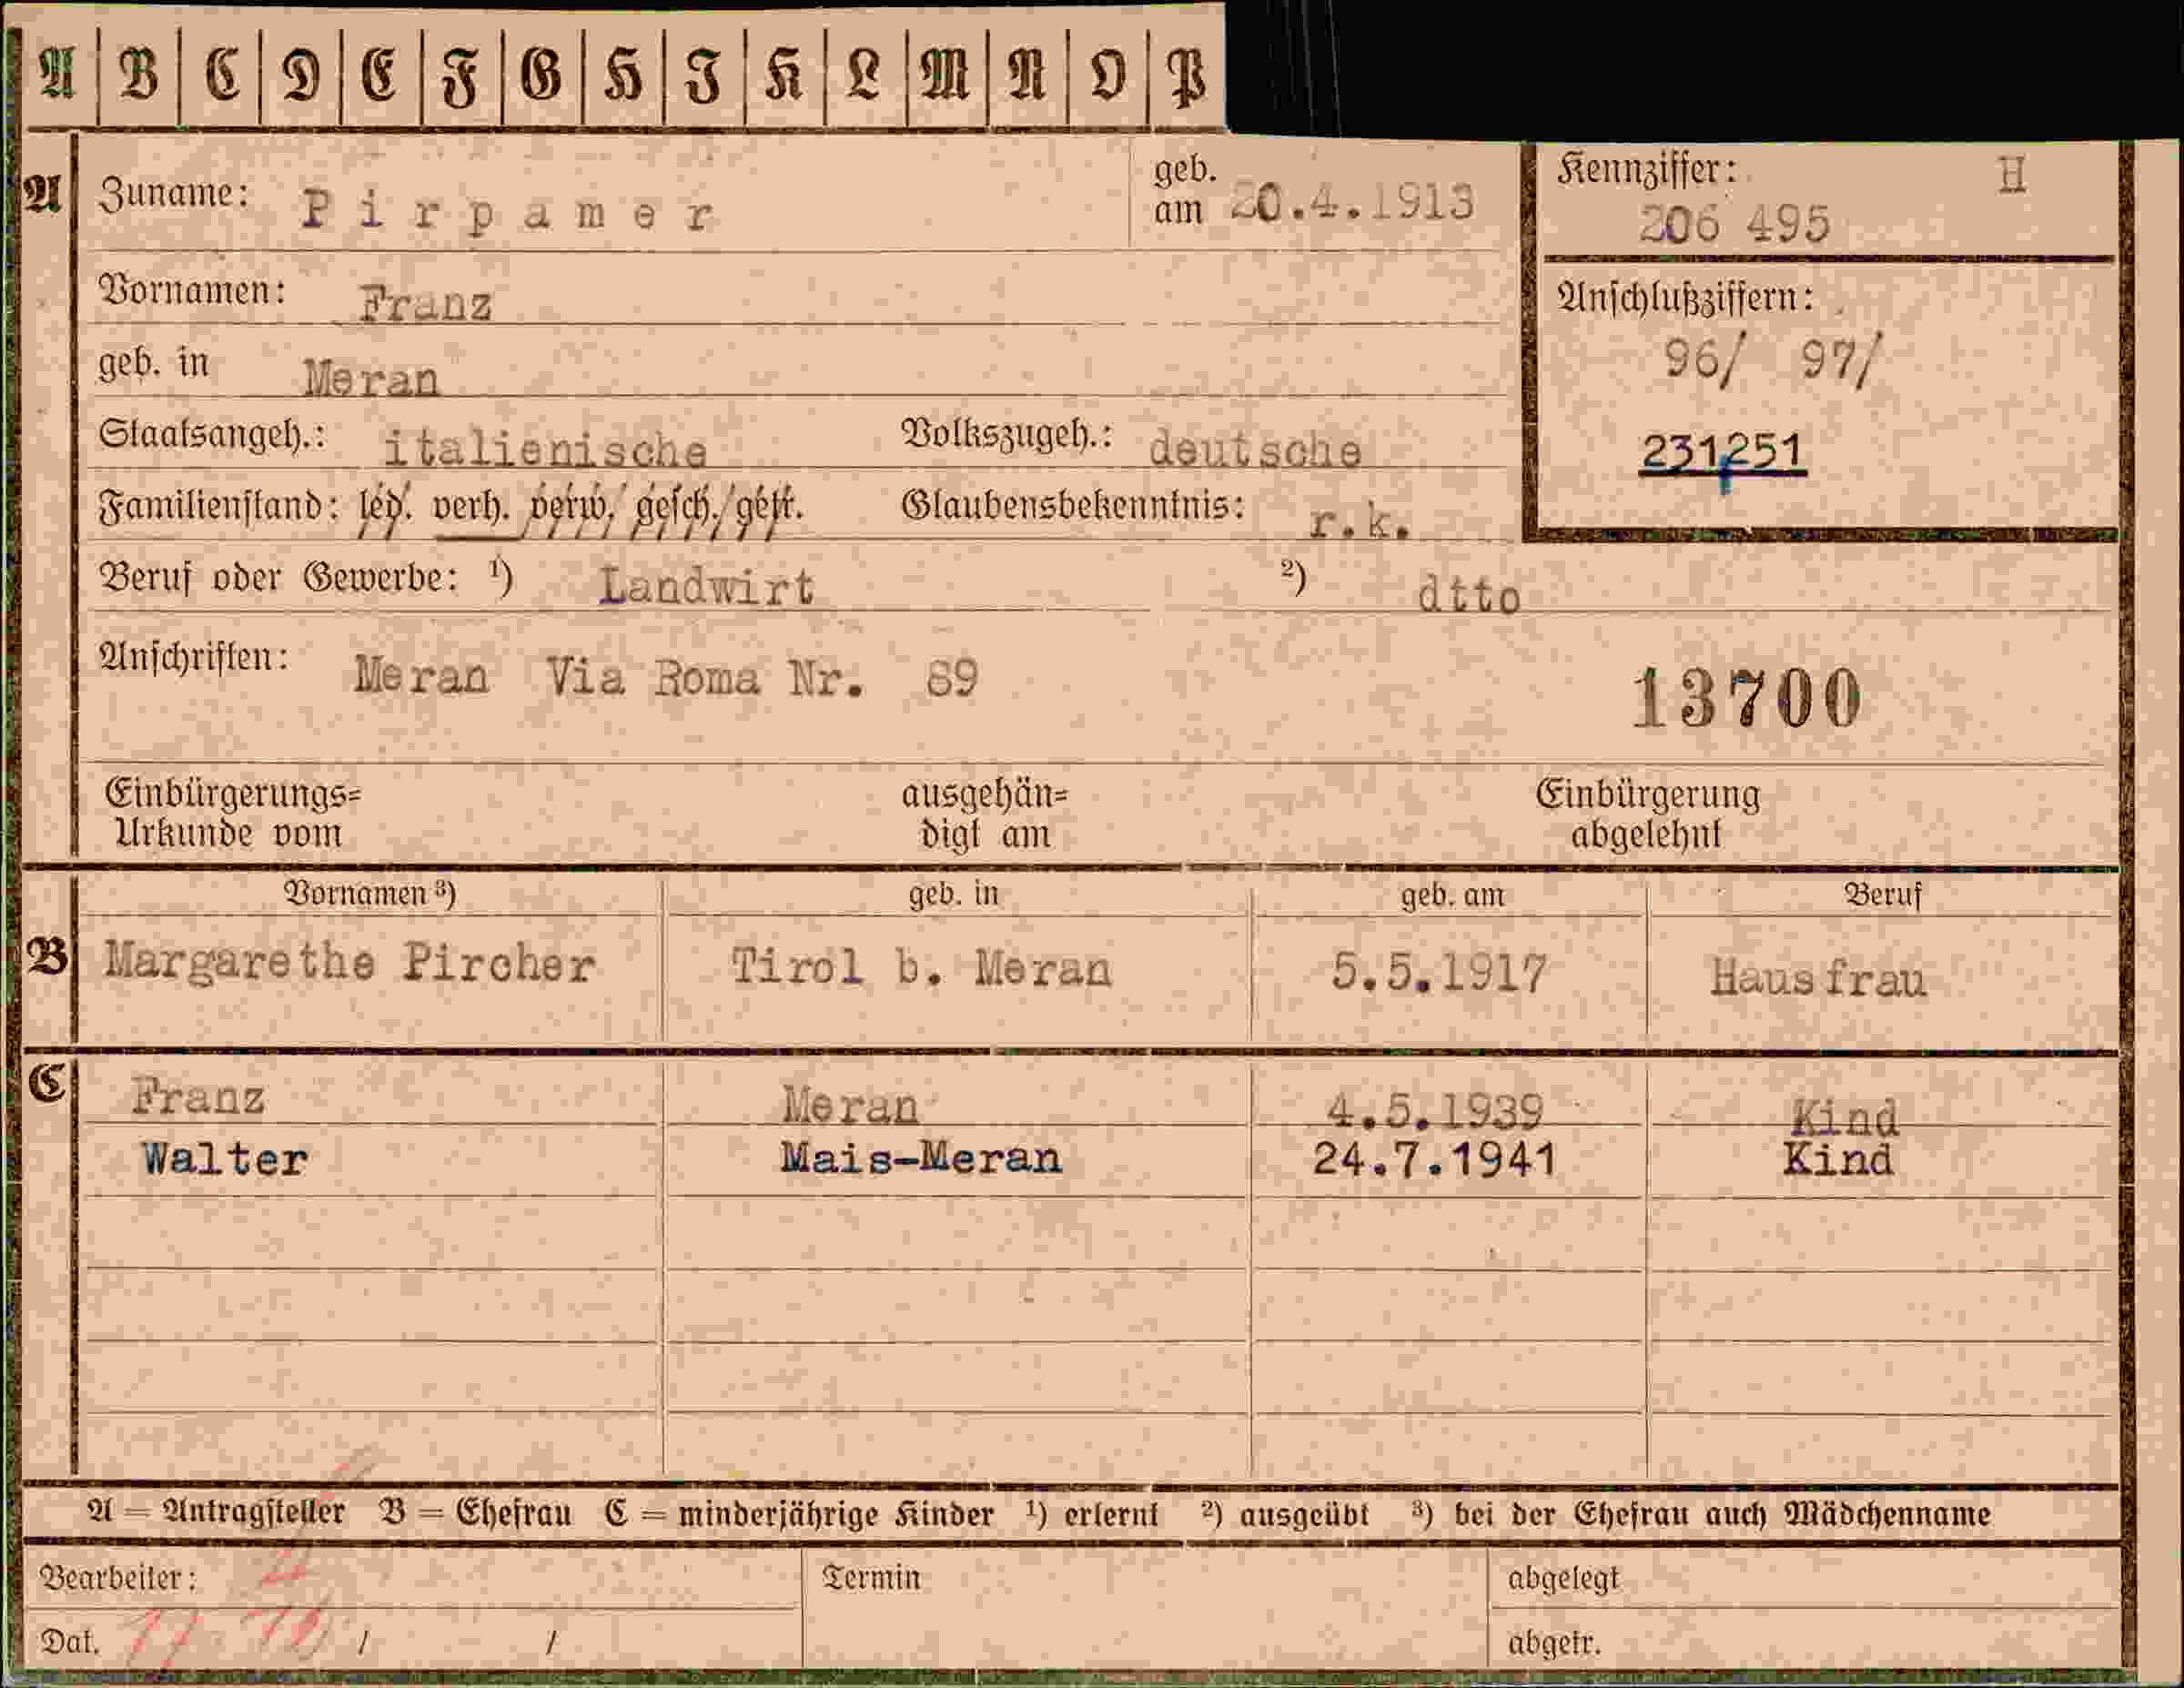 A B C D E F G H J K L M N O P
A Zuname: Pirpamer geb. am 20.4.1913 Kennziffer: H
206 495
Vornamen: Franz Anschlußziffern:
geb. in Meran 96/ 97/
Staatsangeh.: italienische Volkszugeh.: deutsche 231251
Familienstand: led. verh. verw. gesch. getr. Glaubensbekenntnis: r.k.
Beruf oder Gewerbe: 1) Landwirt 2) dtto
Anschriften: Meran Via Roma Nr. 69
13700
Einbürgerungs= ausgehän= Einbürgerung
Urkunde vom digt am abgelehnt
Vornamen 3) geb. in geb. am Beruf
B Margarethe Pircher Tirol b. Meran 5.5.1917 Hausfrau
C Franz Meran 4.5.1939 Kind
Walter Mais-Meran 24.7.1941 Kind
A = Antragsteller B = Ehefrau C = minderjährige Kinder 1) erlernt 2) ausgeübt 3) bei der Ehefrau auch Mädchenname
Bearbeiter: Termin abgelegt
Dat. / / abgetr.